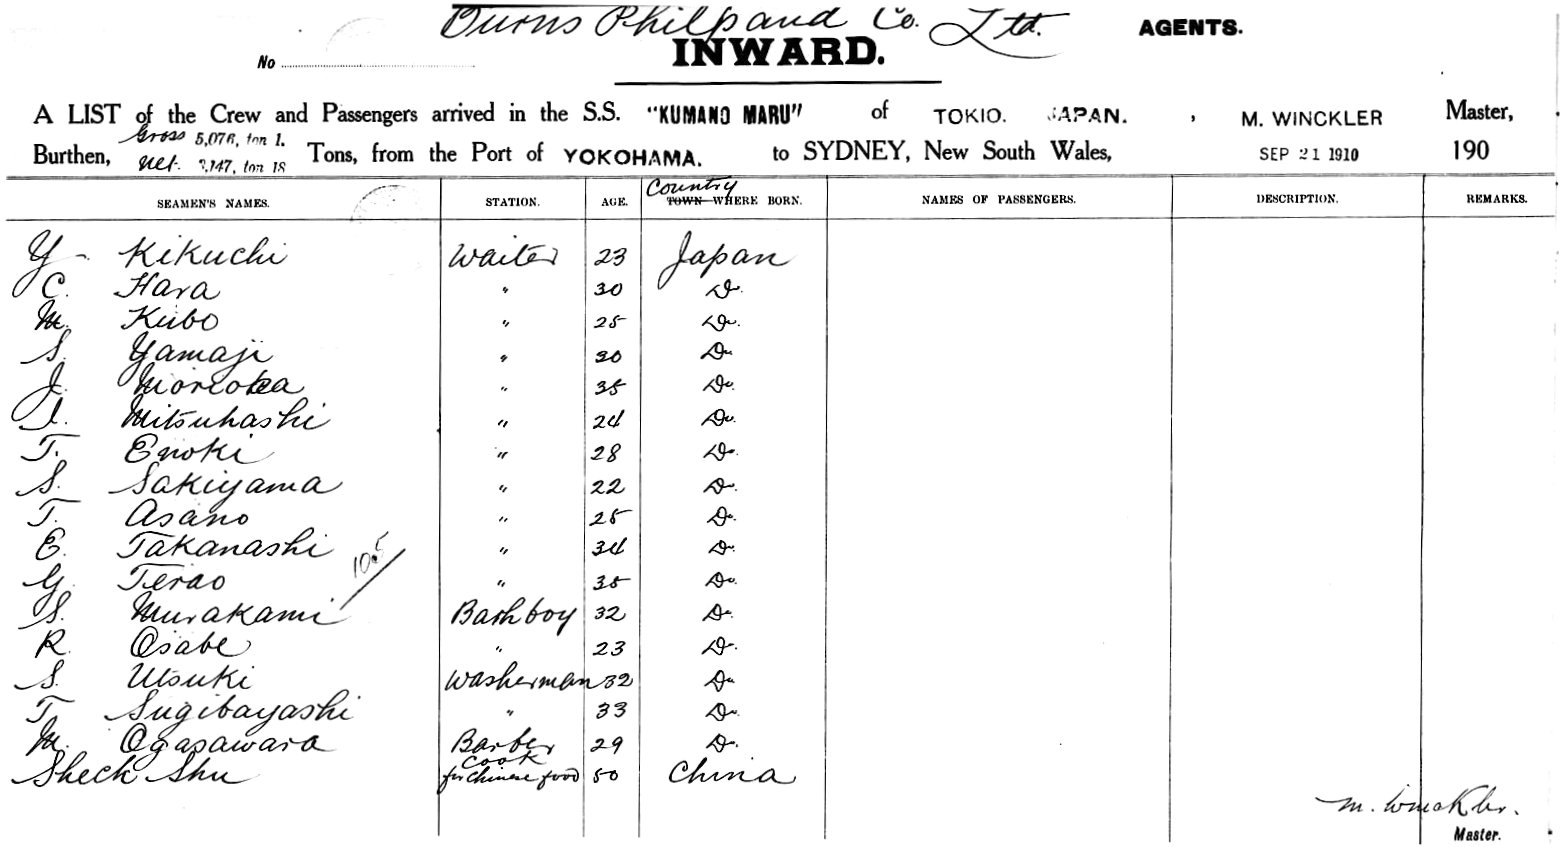 Burns Philp and Co. Ltd. AGENTS.
INWARD.
No
A LIST of the Crew and Passengers arrived in the S.S. "KUMANO MARU" of TOKIO. JAPAN. , M. WINCKLER Master,
Burthen, Gross 5,076, ton 1. Net. 3,147, ton 18 Tons, from the Port of YOKOHAMA. to SYDNEY, New South Wales, SEP 21 1910 190
SEAMEN'S NAMES. STATION. AGE. Country TOWN WHERE BORN. NAMES OF PASSENGERS. DESCRIPTION. REMARKS.
Y. Kikuchi Waiter 23 Japan
C. Hara " 30 Do.
M. Kubo " 25 Do.
S. Yamaji " 30 Do.
J. Morioka " 35 Do.
I. Mitsuhashi " 24 Do.
T. Enoki " 28 Do.
S. Sakiyama " 22 Do.
T. Asano " 25 Do.
E. Takanashi " 34 Do.
105
G. Terao " 35 Do.
S. Murakami Bathboy 32 Do.
R. Osabe " 23 Do.
S. Utsuki Washerman 32 Do.
T. Sugibayashi " 33 Do.
M. Ogasawara Barber 29 Do.
Sheck Shu Cook for Chinese food 50 China
M. Winckler.
Master.